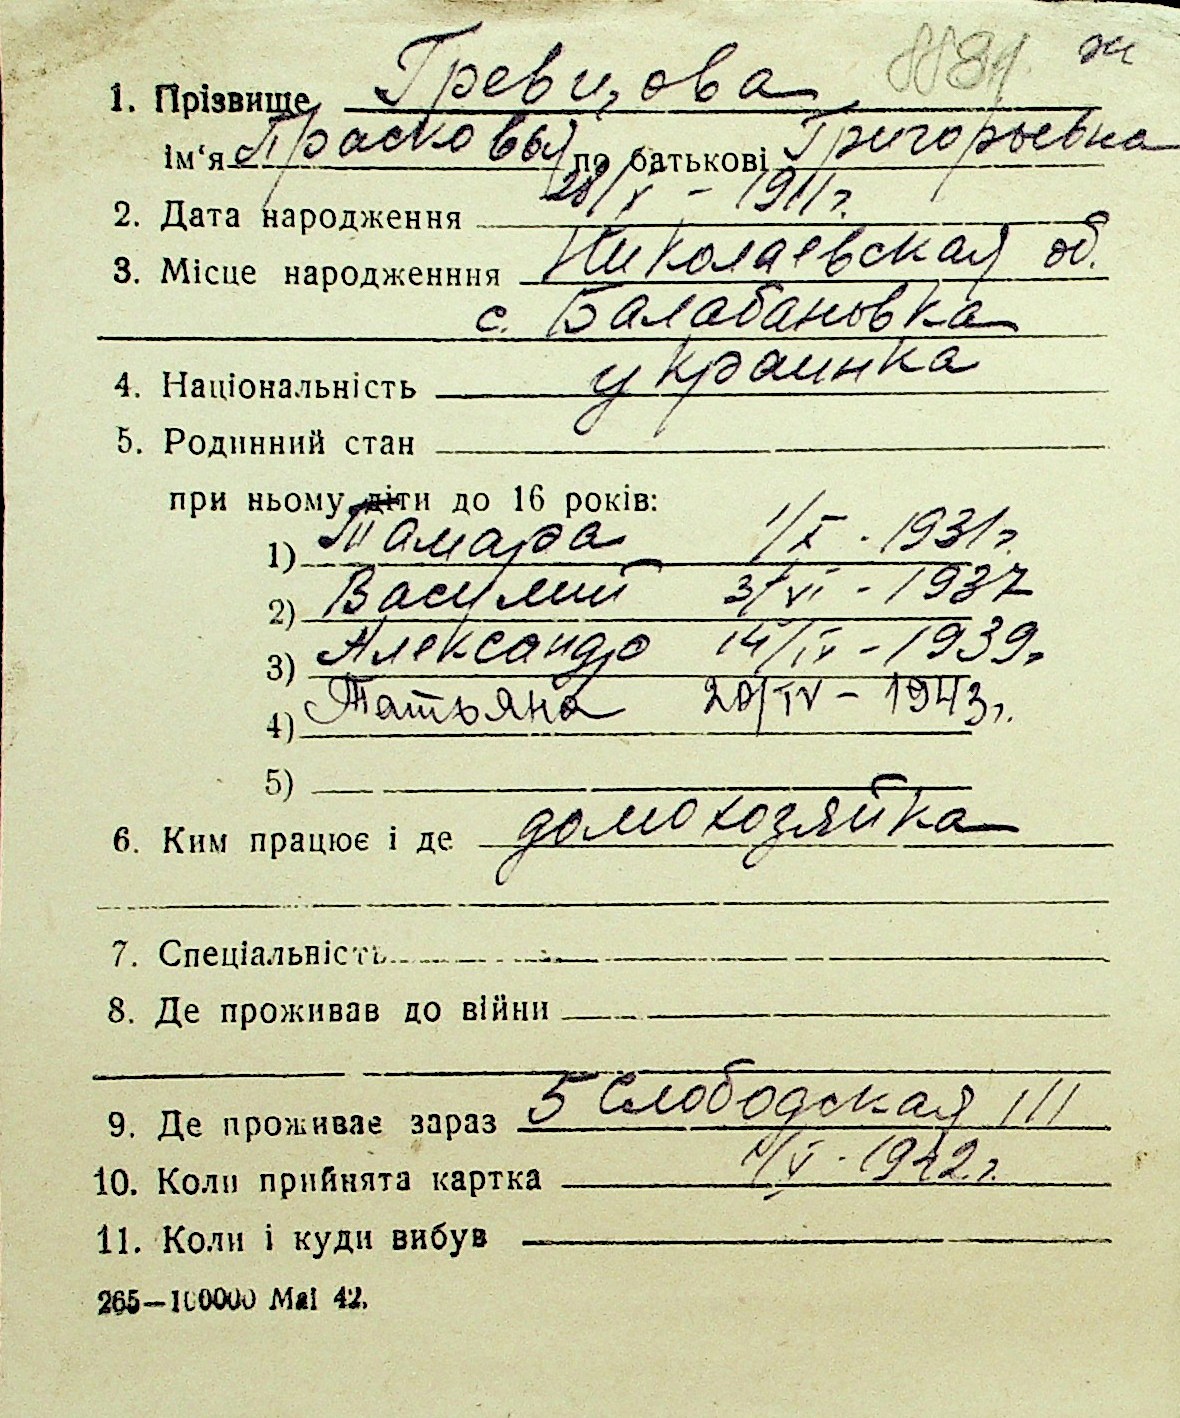 ж
1. Прізвище Гревцова
ім‘я Прасковья по батькові Григорьевна
2. Дата народження 28/V - 1911 г.
3. Місце народженння Николаевская об.
с. Балабановка
4. Національність украинка
5. Родинний стан
при ньому діти до 16 років:
1) Тамара 1/X - 1931 г.
2) Василий 3/VI - 1937
3) Александр 14/IV - 1939 г.
4) Татьяна 20/IV - 1943 г.
5)
6. Ким працює і де домохозяйка
7. Спеціальність
8. Де проживав до війни
9. Де проживає зараз 5 Слободская 111
10. Коли прийнята картка /V - 1942 г.
11. Коли і куди вибув
265—100000 Mai 42.